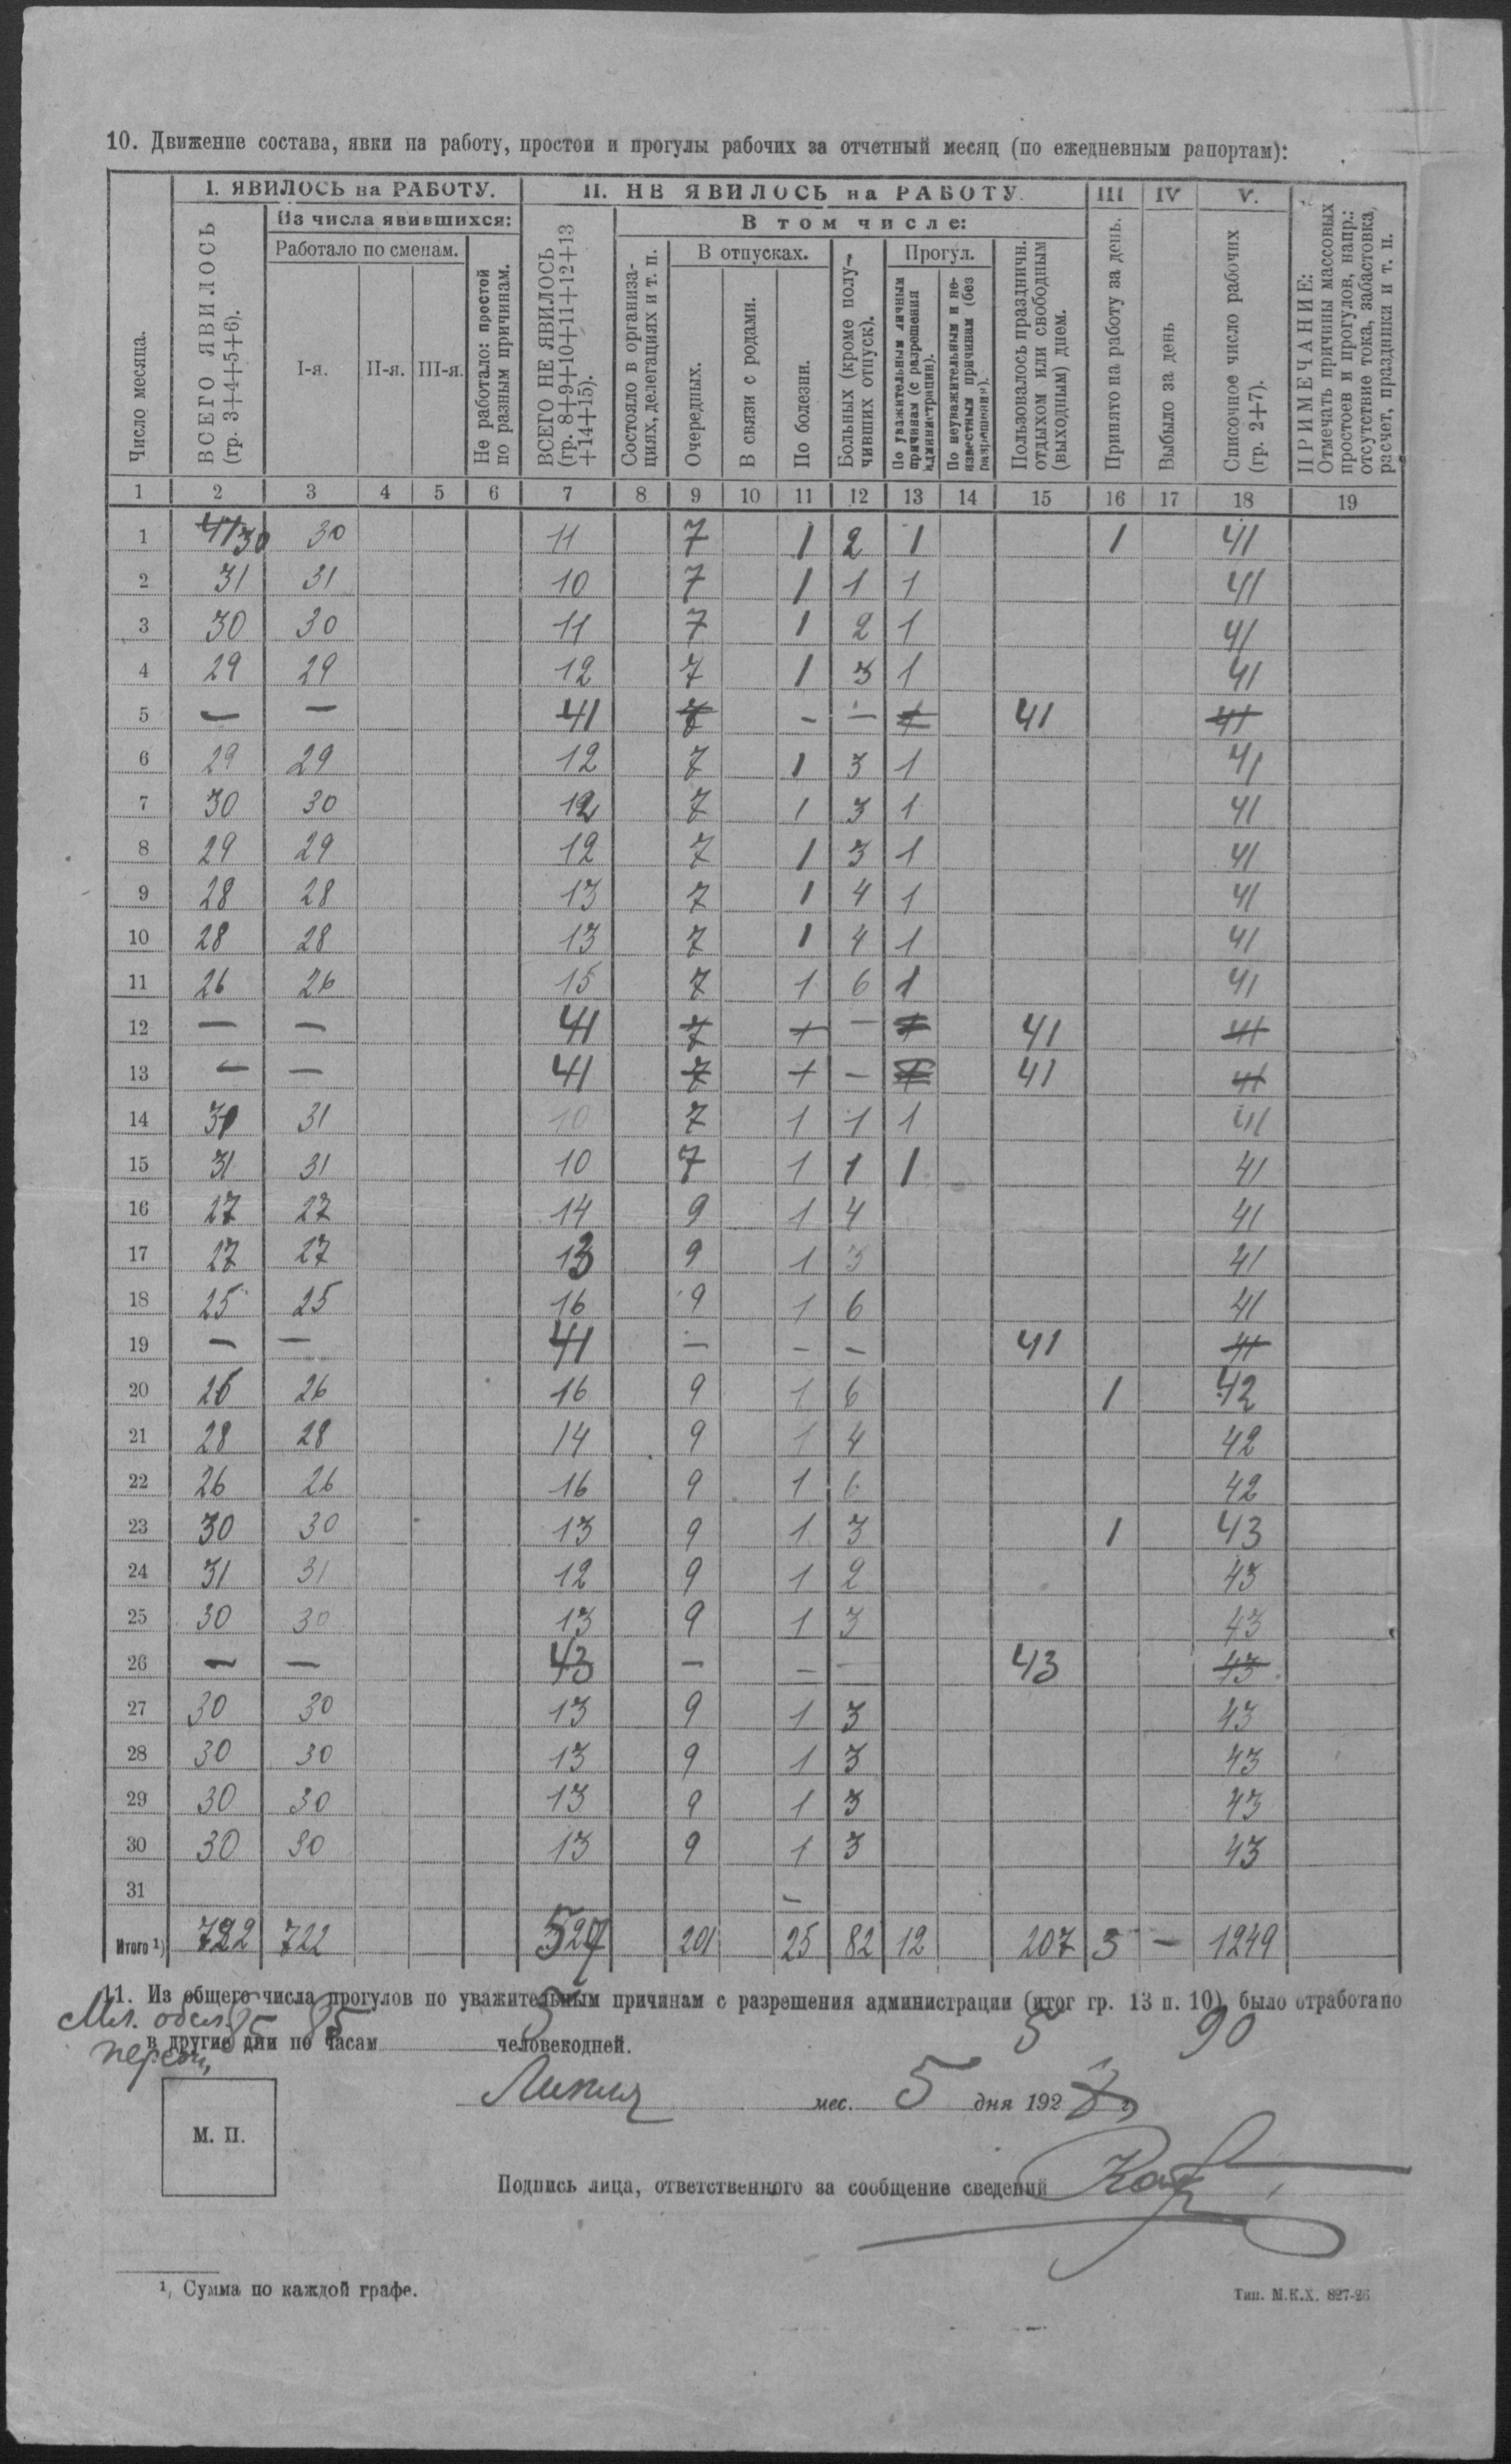 10. Движение состава, явки на работу, простои и прогулы рабочих за отчетный месяц (по ежедневным рапортам):
I. ЯВИЛОСЬ на РАБОТУ. II. НЕ ЯВИЛОСЬ на РАБОТУ. III IV V.
Из числа явившихся: В том числе:
Работало по сменам. В отпусках. Прогул.
Число месяца.
ВСЕГО ЯВИЛОСЬ
(гр. 3+4+5+6).
I-я. II-я. III-я.
Не работало: простой
по разным причинам.
ВСЕГО НЕ ЯВИЛОСЬ
(гр. 8+9+10+11+12+13
+14+15).
Состояло в организа-
циях, делегациях и т. п.
Очередных.
В связи с родами.
По болезни.
Больных (кроме полу-
чивших отпуск).
По уважительным личным
причинам (с разрешения
администрации).
По неуважительным и не-
известным причинам (без
разрешения).
Пользовалось праздничн.
отдыхом или свободным
(выходным) днем.
Принято на работу за день.
Выбыло за день
Списочное число рабочих
(гр. 2+7).
ПРИМЕЧАНИЕ:
Отмечать причины массовых
простоев и прогулов, напр.:
отсутствие тока, забастовка,
расчет, праздники и т. п.
1 2 3 4 5 6 7 8 9 10 11 12 13 14 15 16 17 18 19
1 41 30 30 11 7 1 2 1 1 41
2 31 31 10 7 1 1 1 41
3 30 30 11 7 1 2 1 41
4 29 29 12 7 1 3 1 41
5 — — 41 7 - — 1 41 41
6 29 29 12 7 1 3 1 41
7 30 30 12 7 1 3 1 41
8 29 29 12 7 1 3 1 41
9 28 28 13 7 1 4 1 41
10 28 28 13 7 1 4 1 41
11 26 26 15 7 1 6 1 41
12 — — 41 7 1 — 1 41 41
13 — — 41 7 1 — 1 41 41
14 31 31 10 7 1 1 1 41
15 31 31 10 7 1 1 1 41
16 27 27 14 9 1 4 41
17 27 27 13 9 1 3 41
18 25 25 16 9 1 6 41
19 — — 41 — - - 41 41
20 26 26 16 9 1 6 1 42
21 28 28 14 9 1 4 42
22 26 26 16 9 1 6 42
23 30 30 13 9 1 3 1 43
24 31 31 12 9 1 2 43
25 30 30 13 9 1 3 43
26 — — 43 — — — 43 43
27 30 30 13 9 1 3 43
28 30 30 13 9 1 3 43
29 30 30 13 9 1 3 43
30 30 30 13 9 1 3 43
31 -
Итого ¹) 722 722 527 201 25 82 12 207 3 — 1249
11. Из общего числа прогулов по уважительным причинам с разрешения администрации (итог гр. 13 п. 10) было отработано
Мл. обсл. 85 85 5 5 90
в другие дни по часам человекодней.
мес. 5 дня 192
М. П.
Подпись лица, ответственного за сообщение сведений
¹) Сумма по каждой графе.
Тип. М.К.Х. 827-26